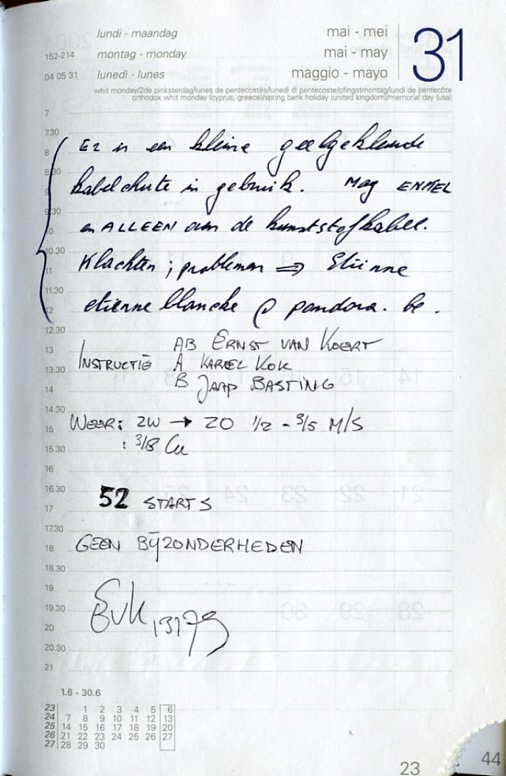 lundi - maandag mai - mei 31
152-214 montag - monday mai - may
04 05 31 lunedì - lunes maggio - mayo
whit monday/2de pinksterdag/lunes de pentecostés/lunedì di pentecoste/pfingstmontag/lundi de pentecôte
orthodox whit monday (cyprus, greece)/spring bank holiday (united kingdom)/memorial day (usa)
7
7.30
8 Er is een kleine geelgekleurde
8.30
9 kabelchute in gebruik. Mag ENKEL
9.30
10 en ALLEEN aan de kunststofkabel.
10.30
11 Klachten; problemen ⇒ Etienne
11.30
12 etienne.blancke @ pandora.be.
12.30
13 AB ERNST VAN KOERT
13.30 INSTRUCTIE A KAREL KOK
14 B JAAP BASTING
14.30
15 WEER: ZW → ZO 1/2 - 3/5 M/S
15.30 : 3/8 Cu
16
16.30 52 STARTS
17
17.30
18 GEEN BIJZONDERHEDEN
18.30
19
19.30 EvK 13179
20
20.30
21
1.6 - 30.6
23 1 2 3 4 5 6
24 7 8 9 10 11 12 13
25 14 15 16 17 18 19 20
26 21 22 23 24 25 26 27
27 28 29 30
23
44